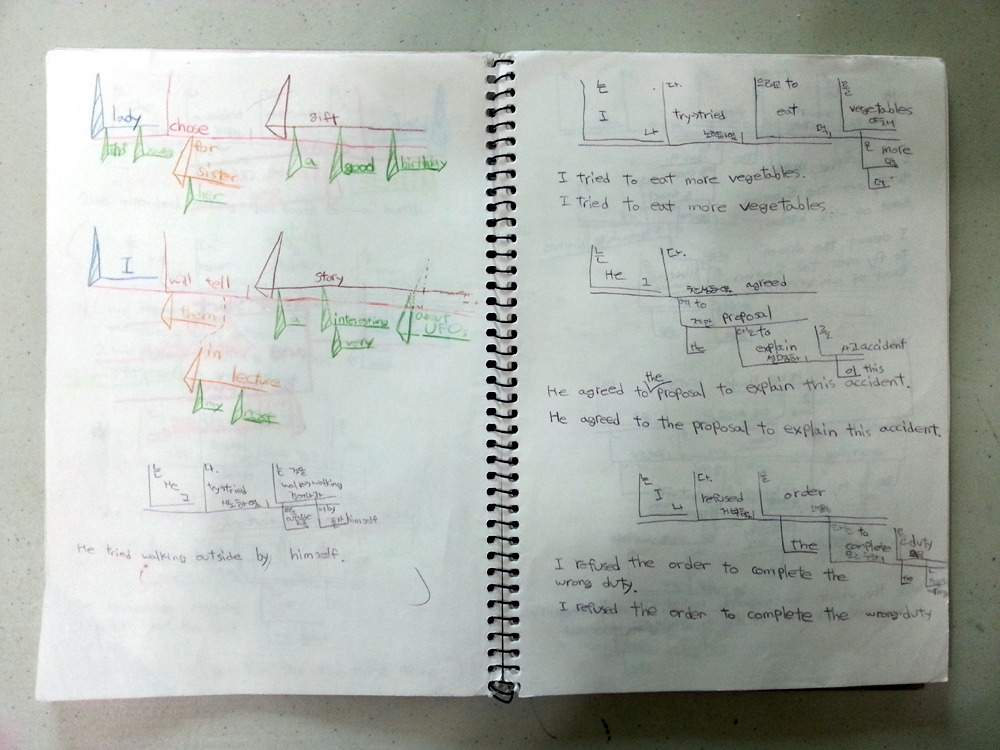 lady
chose
gift
for
a
good
birthday
sister
her
I
will tell
story
them
a
interesting
about
UFOs
very
in
lecture
my
next
는
He
그
다.
try-tried
는 것을
walk-walking
by
himself
He tried walking outside by himself.
는
I
나
다.
try-tried
으려고 to
eat
를
vegetables
more
더
I tried to eat more vegetables.
I tried to eat more vegetables
는
He
그
다.
agreed
에 to
제안 proposal
the
to
explain
를
사고 accident
이 this
the
He agreed to proposal to explain this accident.
He agreed to the proposal to explain this accident.
는
I
나
다.
refused
을
order
the
to
complete
duty
the
I refused the order to complete the
wrong duty.
I refused the order to complete the wrong duty